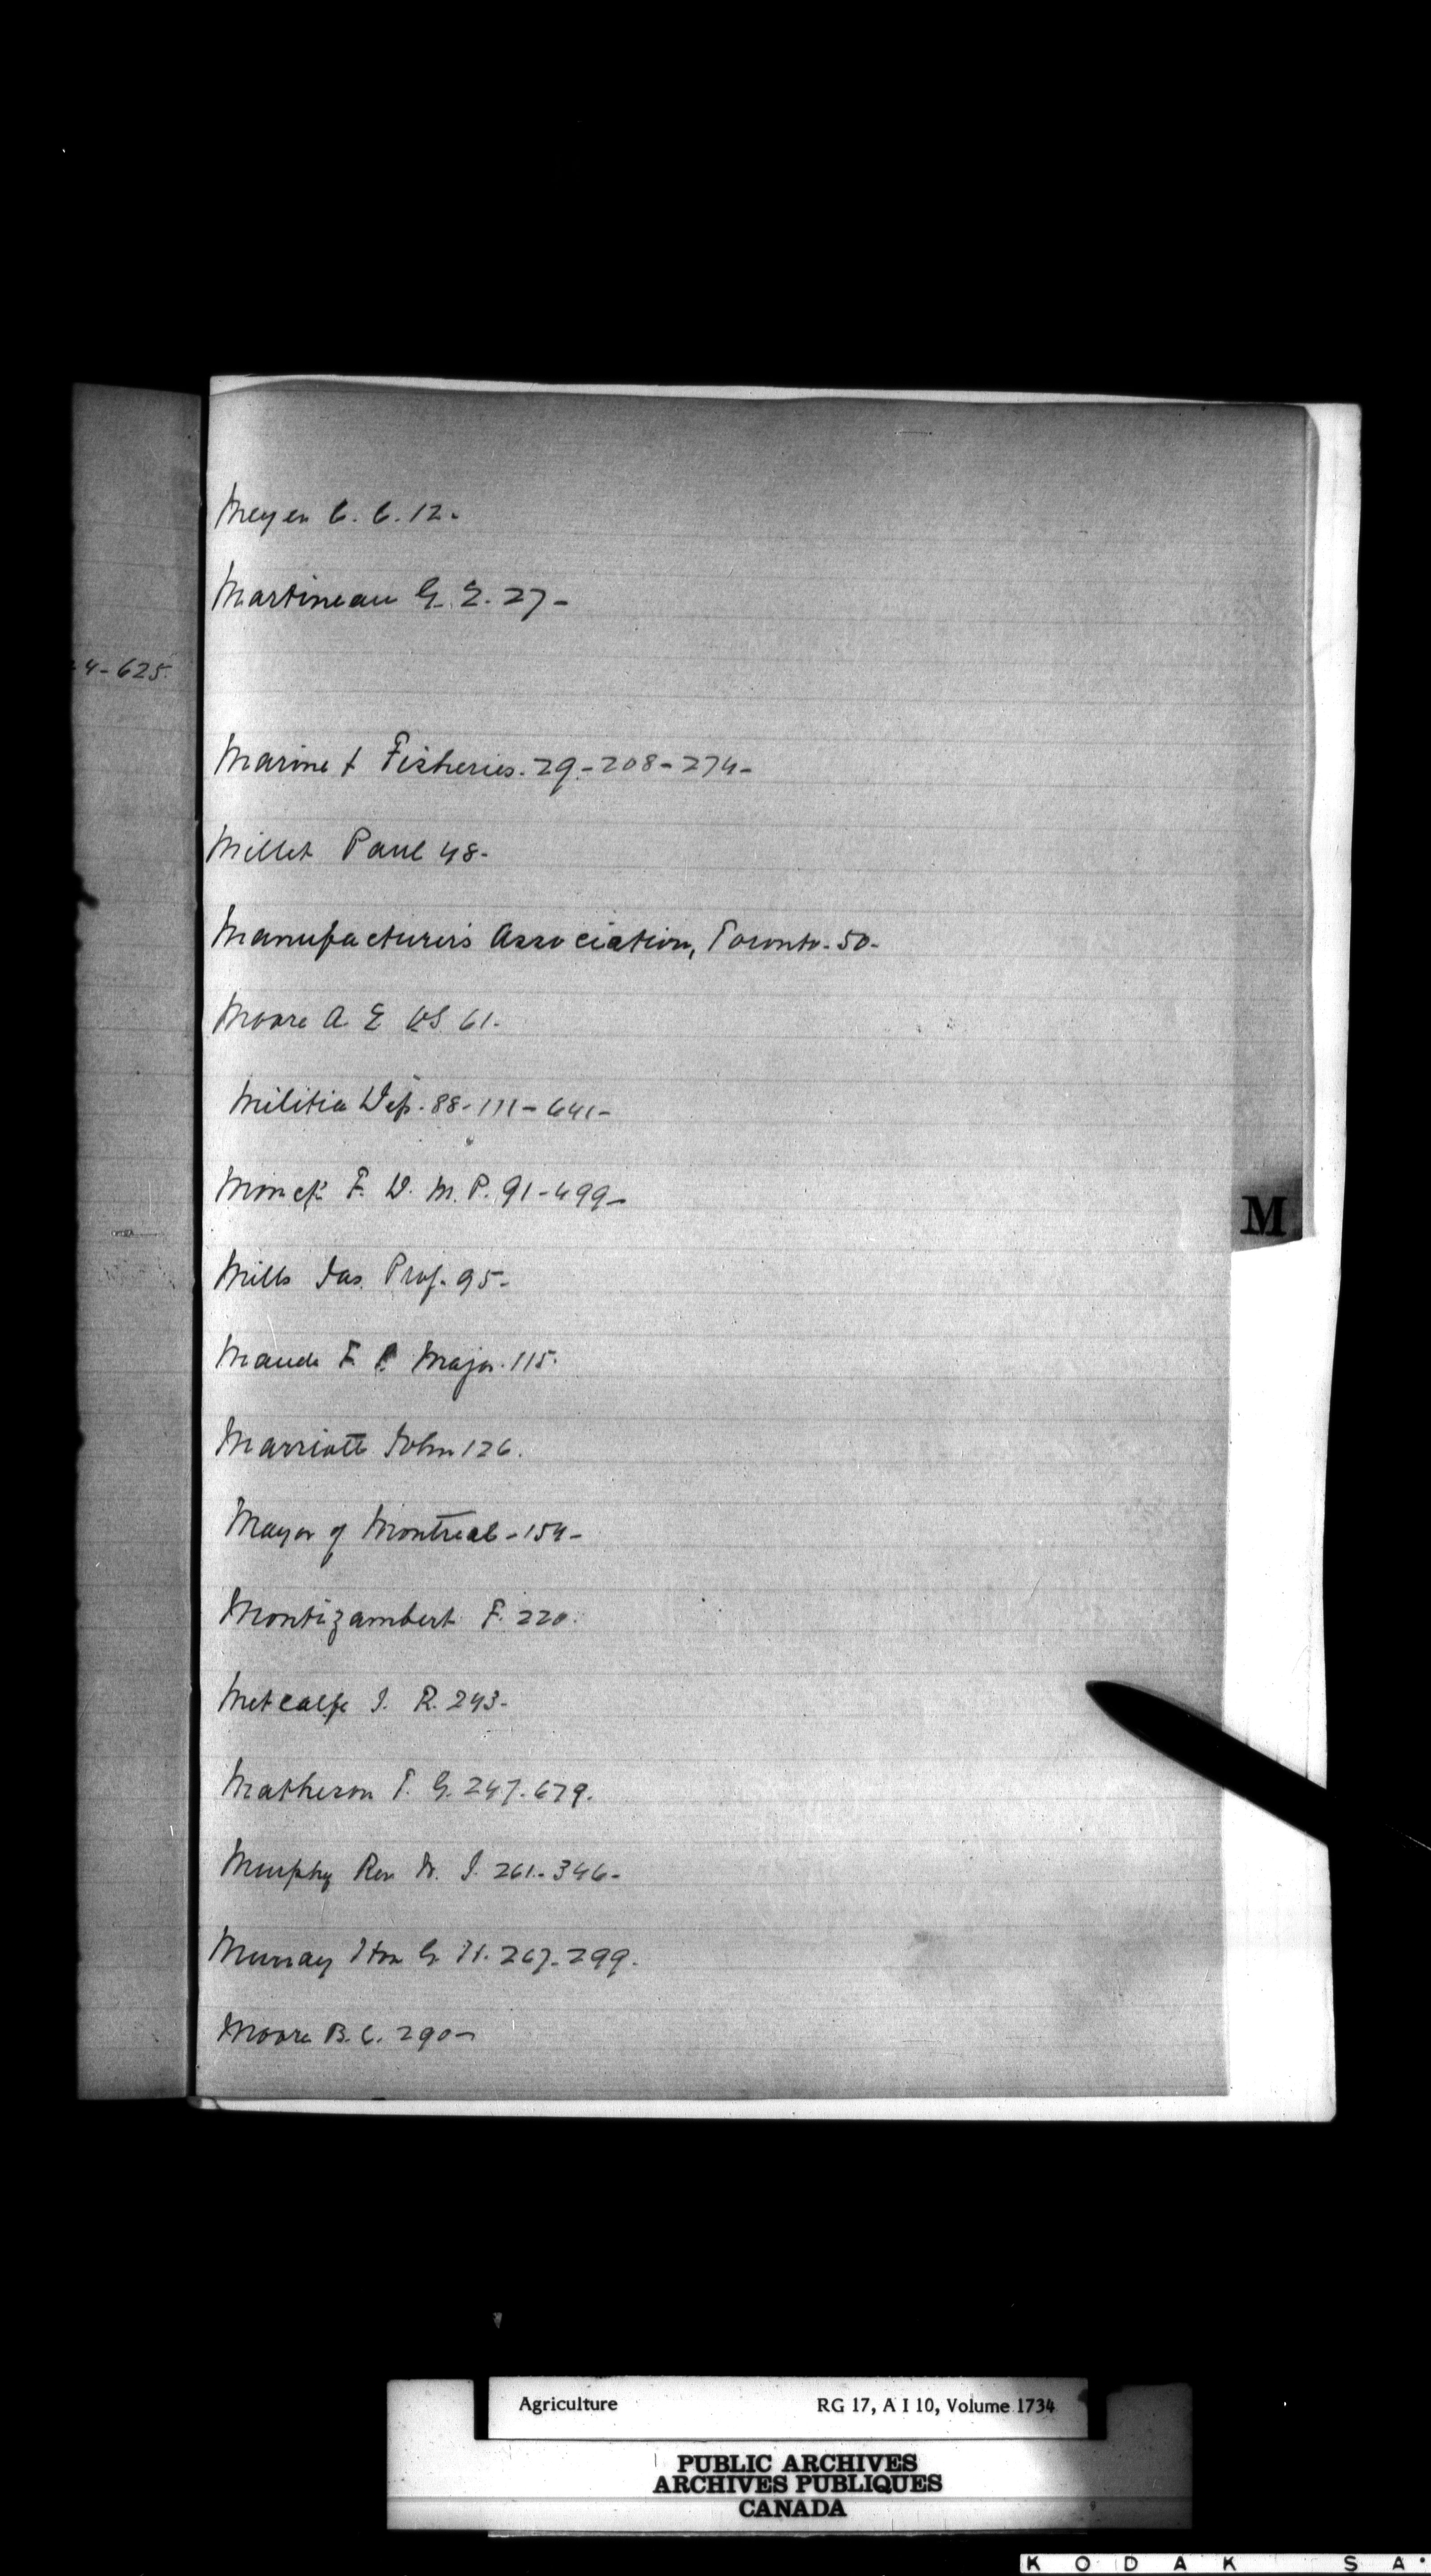 4-625.
Meyer C. C. 12-
Martineau G. E. 27-
Marine & Fisheries. 29-208-274-
Millet Paul 48-
Manufacturer's Association, Toronto-50-
Moore A. E V.S. 61-
Militia Dep. 88-111-641-
Monck F. D. M.P. 91-499-
Mills Jas. Prof. 95-
Maude F. Major. 115.
Marriott John 126.
Mayor of Montreal-154-
Montizambert F. 220.
Metcalfe J. R. 243-
Matheson T. G. 247-679.
Murphy Rev D. J. 261-346-
Murray Hon G H. 267-299.
Moore B. C. 290-
M
Agriculture RG 17, A I 10, Volume 1734
PUBLIC ARCHIVES
ARCHIVES PUBLIQUES
CANADA
KODAK SA